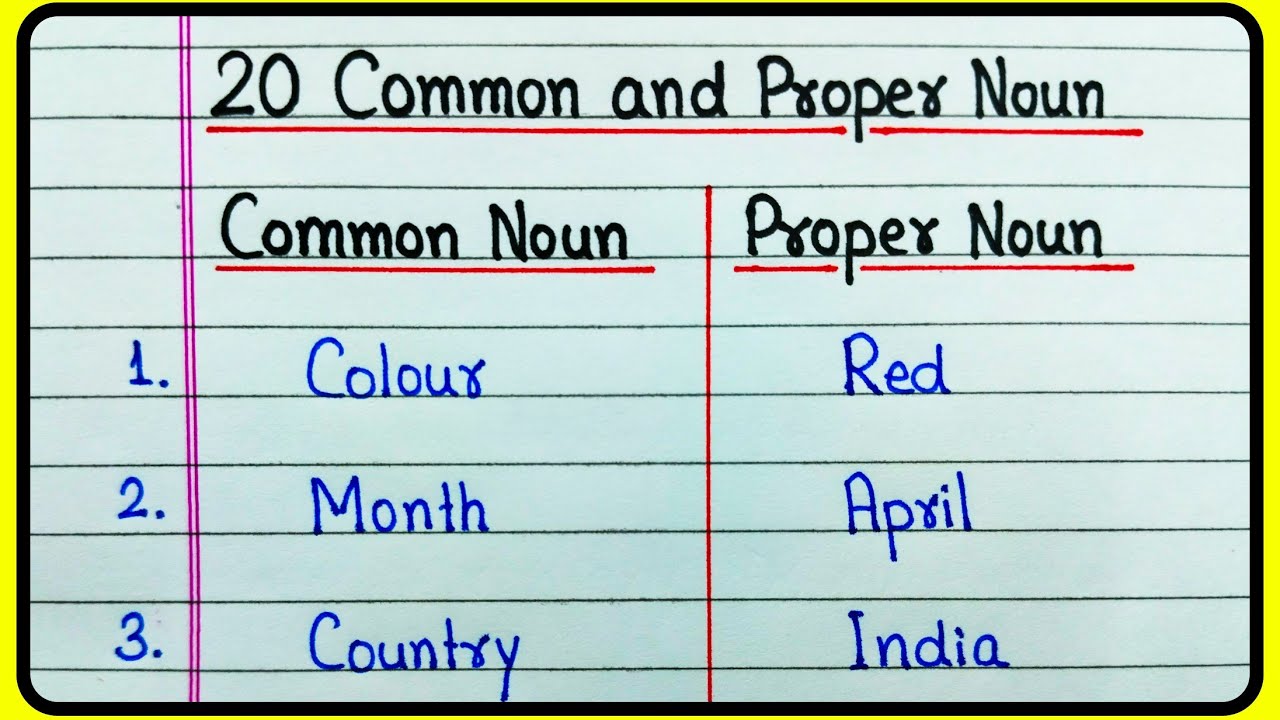 20 Common and Proper Noun
Common Noun Proper Noun
1. Colour Red
2. Month April
3. Country India